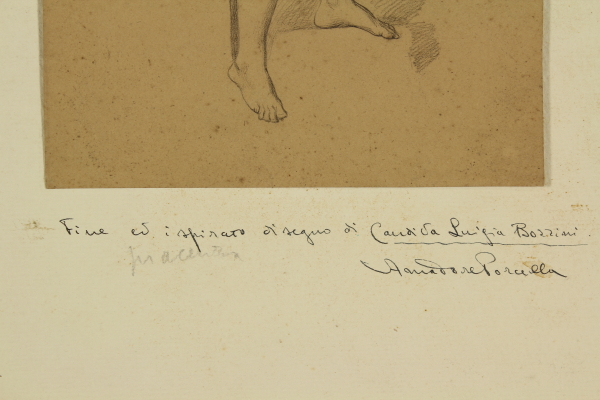 Fine ed ispirato disegno di Candida Luigia Bozzini.
Amadore Porcella